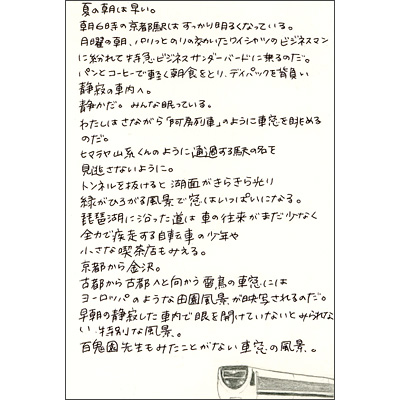 夏の朝は早い。
朝6時の京都駅はすっかり明るくなっている。
月曜の朝、パリッとのりの効いたワイシャツのビジネスマン
に紛れて特急ビジネスサンダーバードに乗るのだ。
パンとコーヒーで軽く朝食をとり、デイパックを背負い
静寂の車内へ。
静かだ。みんな眠っている。
わたしはさながら「阿房列車」のように車窓を眺める
のだ。
ヒマラヤ山系くんのように通過する駅の名を
見逃さないように。
トンネルを抜けると湖面がきらきら光り
緑がひろがる風景で窓はいっぱいになる。
琵琶湖に沿った道は車の往来がまだ少なく
全力で疾走する自転車の少年や
小さな喫茶店もみえる。
京都から金沢。
古都から古都へと向かう雷鳥の車窓には
ヨーロッパのような田園風景が映写されるのだ。
早朝の静寂した車内で眼を開けていないとみられな
い特別な風景。
百鬼園先生もみたことがない車窓の風景。